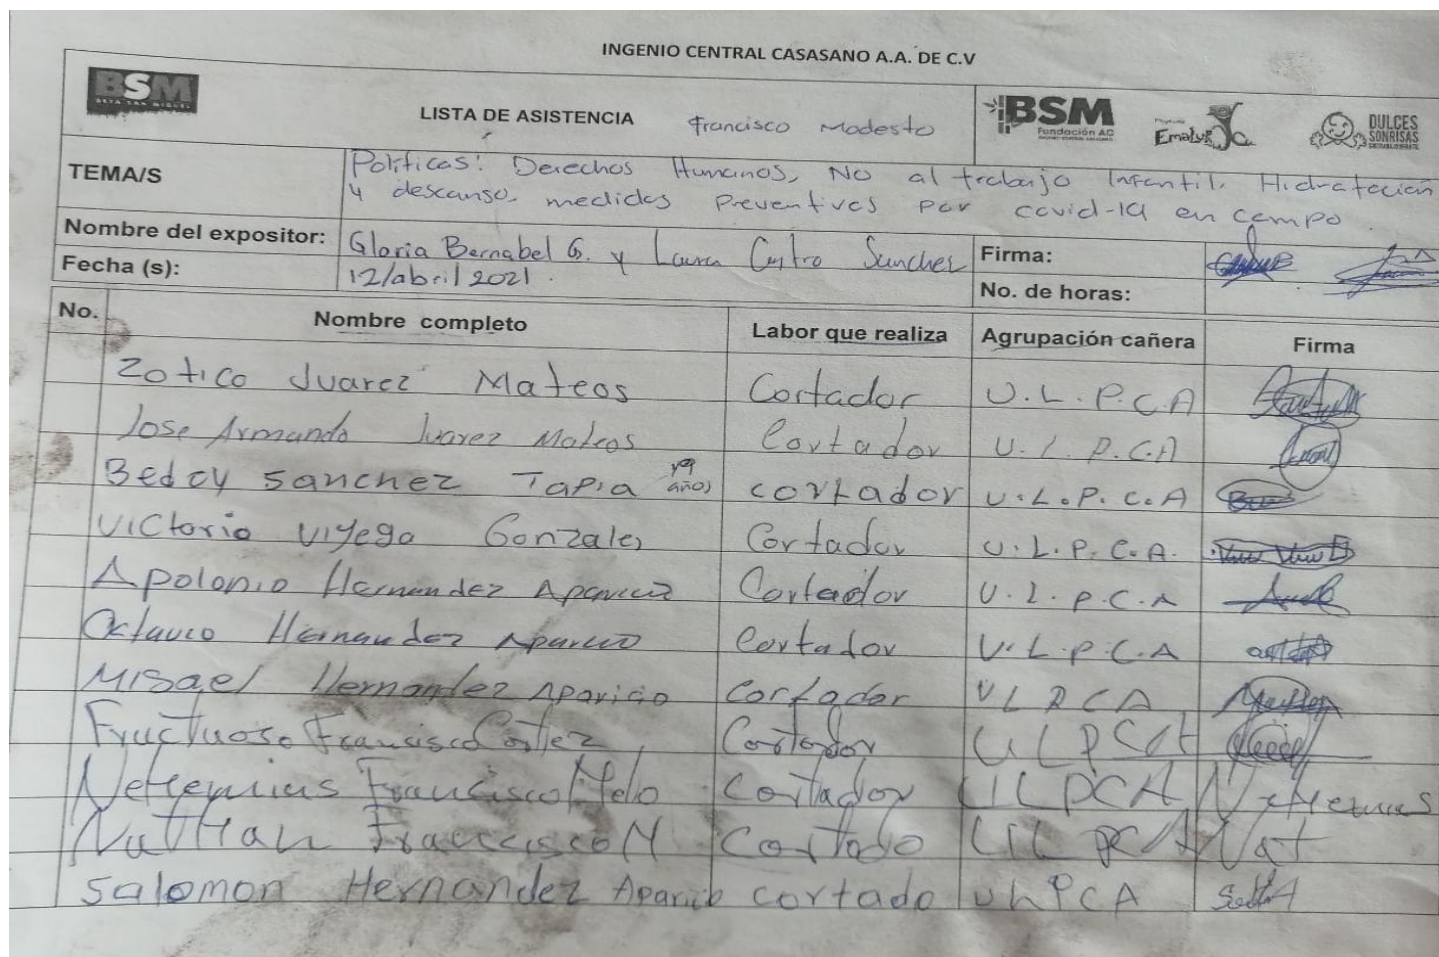 INGENIO CENTRAL CASASANO A.A. DE C.V
BSM
BETA SAN MIGUEL
LISTA DE ASISTENCIA Francisco Modesto
BSM
Fundación AC
EmaluR
DULCES
SONRISAS
TEMA/S
Politicas: Derechos Humanos, No al trabajo Infantil, Hidratación
y descanso, medidas Preventivas por covid-19 en campo.
Nombre del expositor: Gloria Bernabel G. y Laura Castro Sanchez Firma:
Fecha (s): 12/abril 2021. No. de horas:
No. Nombre completo Labor que realiza Agrupación cañera Firma
Zotico Juarez Mateos Cortador U.L.P.C.A
Jose Armando Juarez Mateos Cortador U.L.P.C.A
Bedcy Sanchez Tapia años cortador U.L.P.C.A
Victorio Viyega Gonzales Cortador U.L.P.C.A.
Apolonio Hernandez Aparicio Cortador U.L.P.C.A
Octavio Hernandez Aparicio Cortador U.L.P.C.A
Misael Hernandez Aparicio Cortador ULPCA
Fructuoso Francisco Cortez Cortador ULPCA
Nehemias Francisco Melo Cortador ULPCA Nehemias
Nathan Francisco M Cortado ULPCA Nat
Salomon Hernandez Aparicio cortado ULPCA